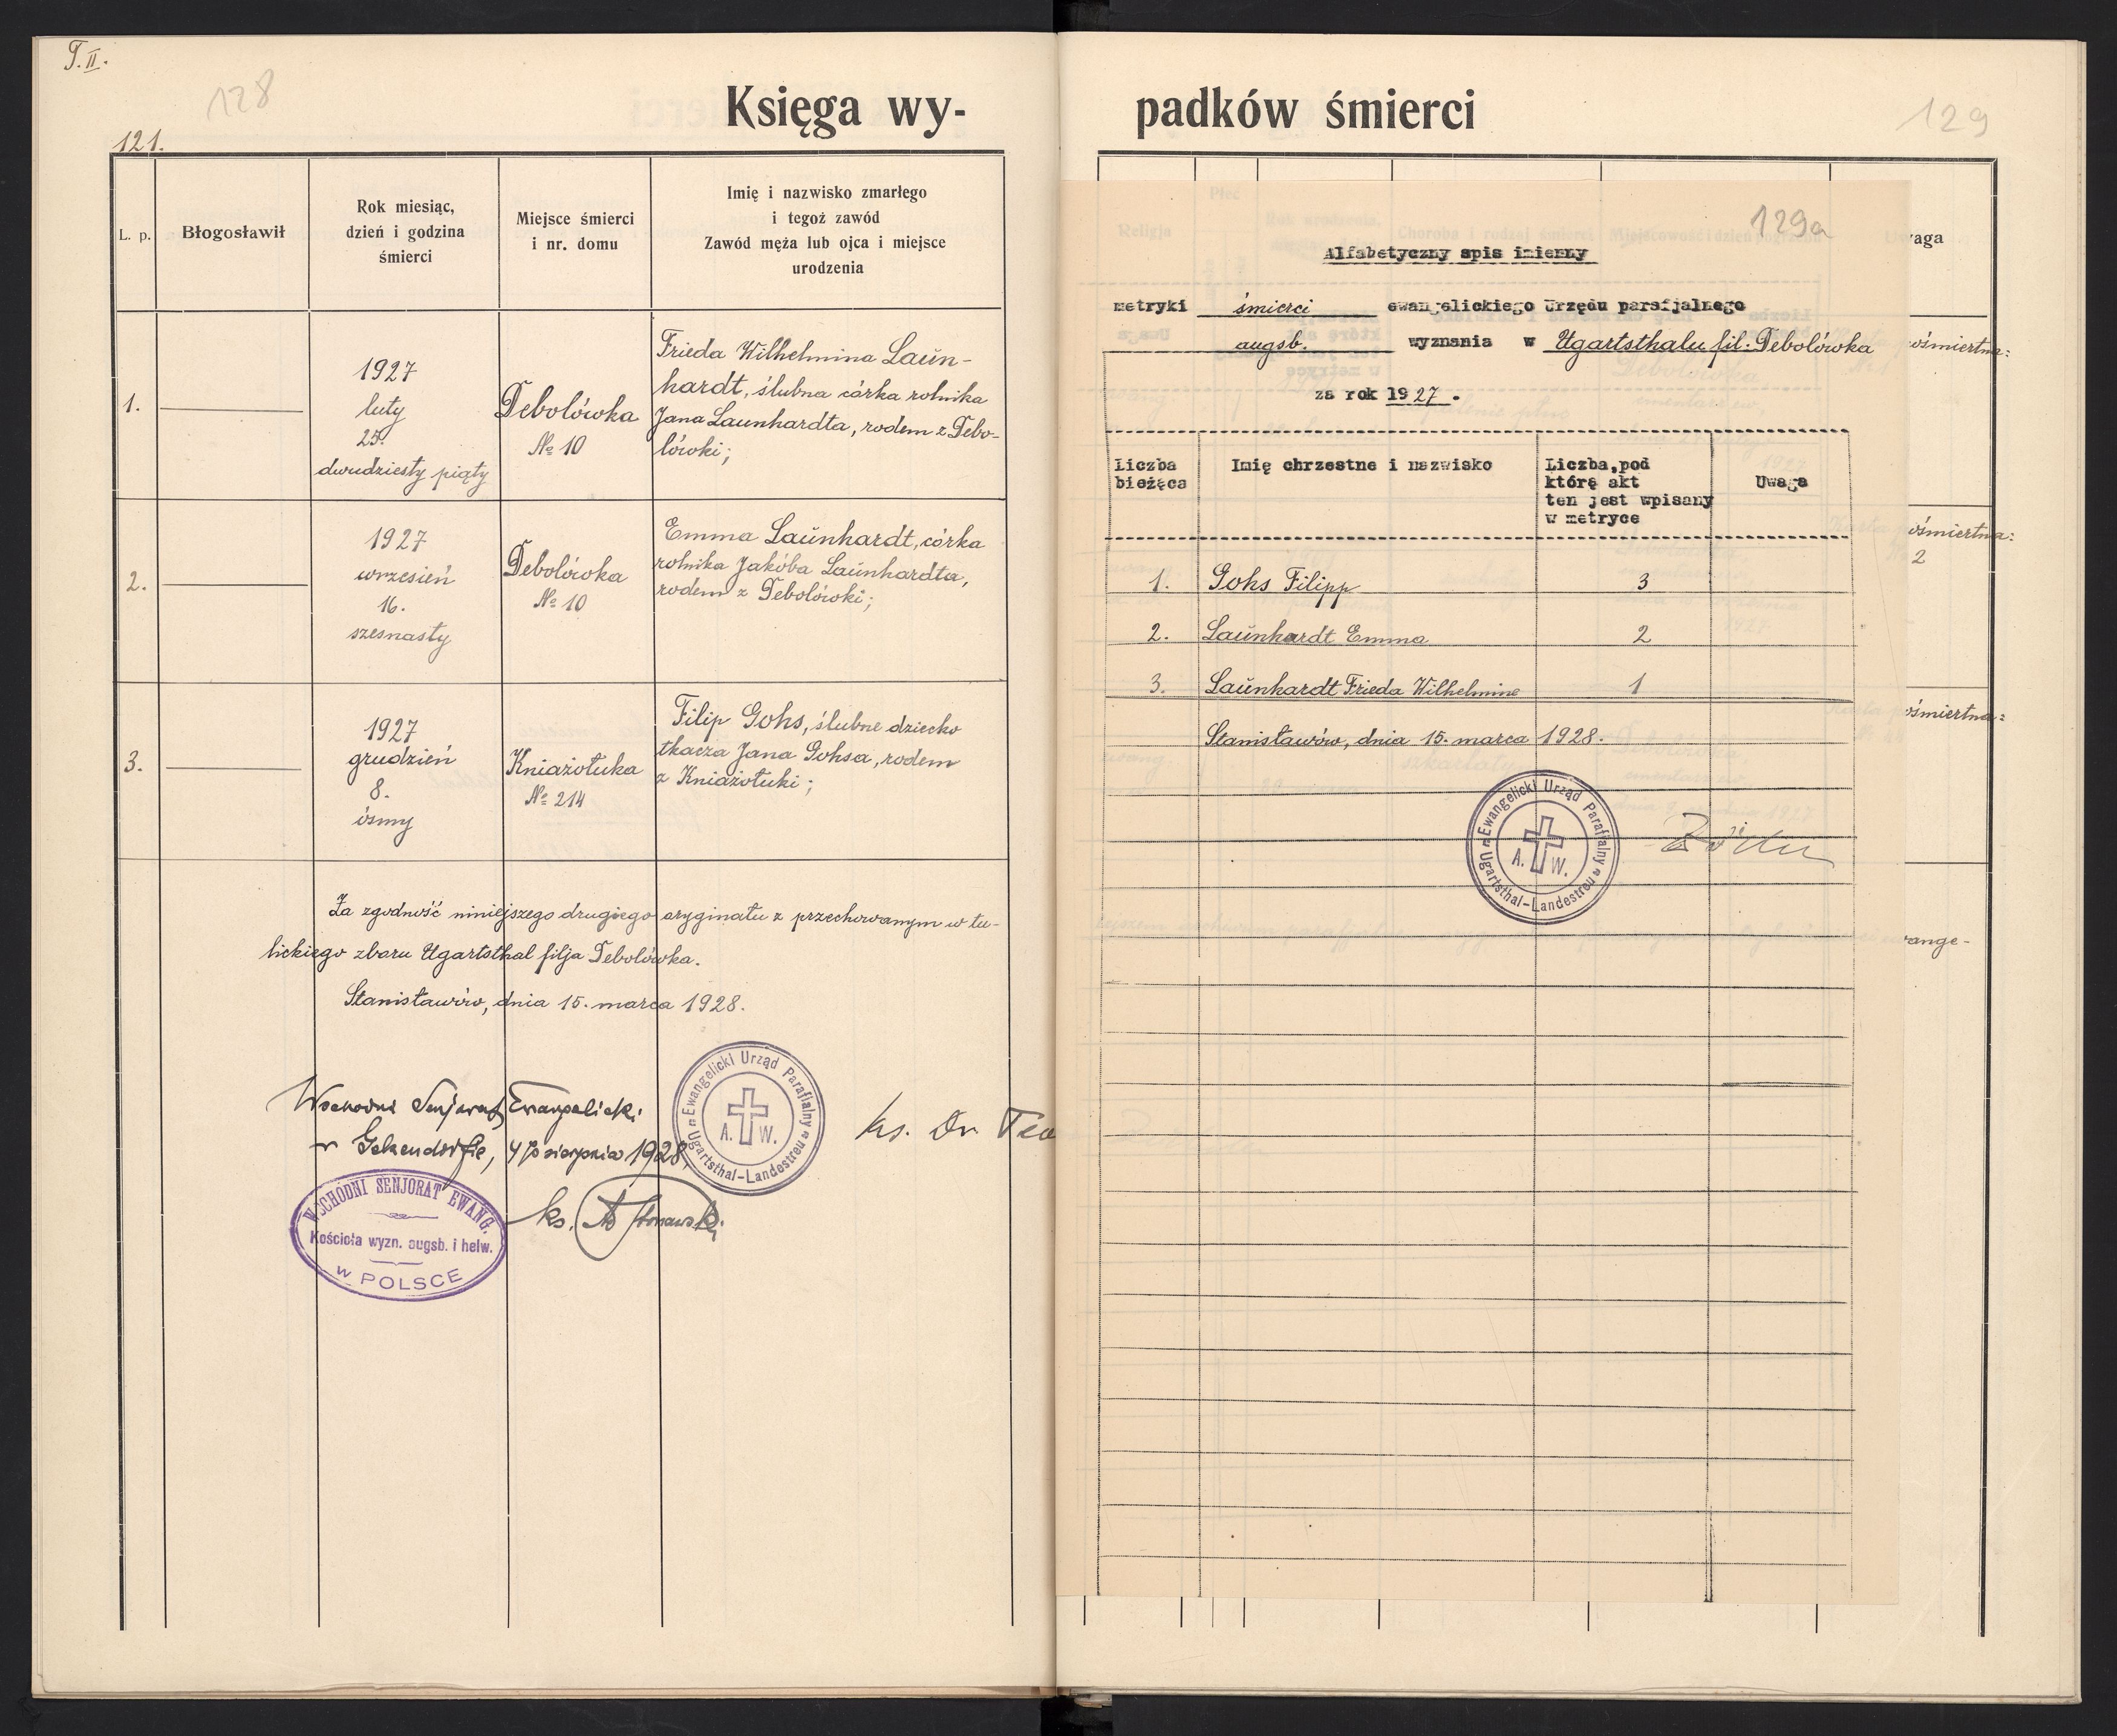 T. II.
128
121.
Księga wy-
L. p.
Błogosławił
Rok miesiąc,
dzień i godzina
śmierci
Miejsce śmierci
i nr. domu
Imię i nazwisko zmarłego
i tegoż zawód
Zawód męża lub ojca i miejsce
urodzenia
1.
1927
luty
25.
dwudziesty piąty
Debolówka
№ 10
Frieda Wilhelmina Laŭn-
hardt, ślubna córka rolnika
Jana Launhardta, rodem z Debo-
lówki;
2.
1927
wrzesień
16.
szesnasty
Debolówka
№ 10
Emma Laŭnhardt, córka
rolnika Jakóba Laŭnhardta,
rodem z Debolówki;
3.
1927
grudzień
8.
ósmy
Kniaziołuka
№ 214
Filip Gohs, ślubne dziecko
tkacza Jana Gohsa, rodem
z Kniaziołuki;
Za zgodność niniejszego drugiego oryginału z przechowanym w tu-
lickiego zboru Ugartsthal filja Debolówka.
Stanisławów, dnia 15. marca 1928.
Wschodni Senjorat Ewangelicki
w Gelsendorfie, 4 sierpnia 1928.
Ewangelicki Urząd Parafialny
A. W.
Ugartsthal-Landestreu
ks. Dr. Teo
WSCHODNI SENJORAT EWANG.
Kościoła wyzn. augsb. i helw.
w POLSCE
ks.
padków śmierci
129
129a
Uwaga
Alfabetyczny spis imienny
metryki śmierci ewangelickiego Urzędu parafjalnego
augsb. wyznania w Ugartsthalu fil: Debolówka
za rok 1927.
Liczba
bieżąca
Imię chrzestne i nazwisko
Liczba,pod
którę akt
ten jest wpisany
w metryce
Uwaga
1. Gohs Filipp 3
2. Laŭnhardt Emma 2
3. Laŭnhardt Frieda Wilhelmine 1
Stanisławów, dnia 15. marca 1928.
Ewangelicki Urząd Parafialny
A. W.
Ugartsthal-Landestreu
ośmiertna:
ośmiertna:
2
ośmiertna:
ange-